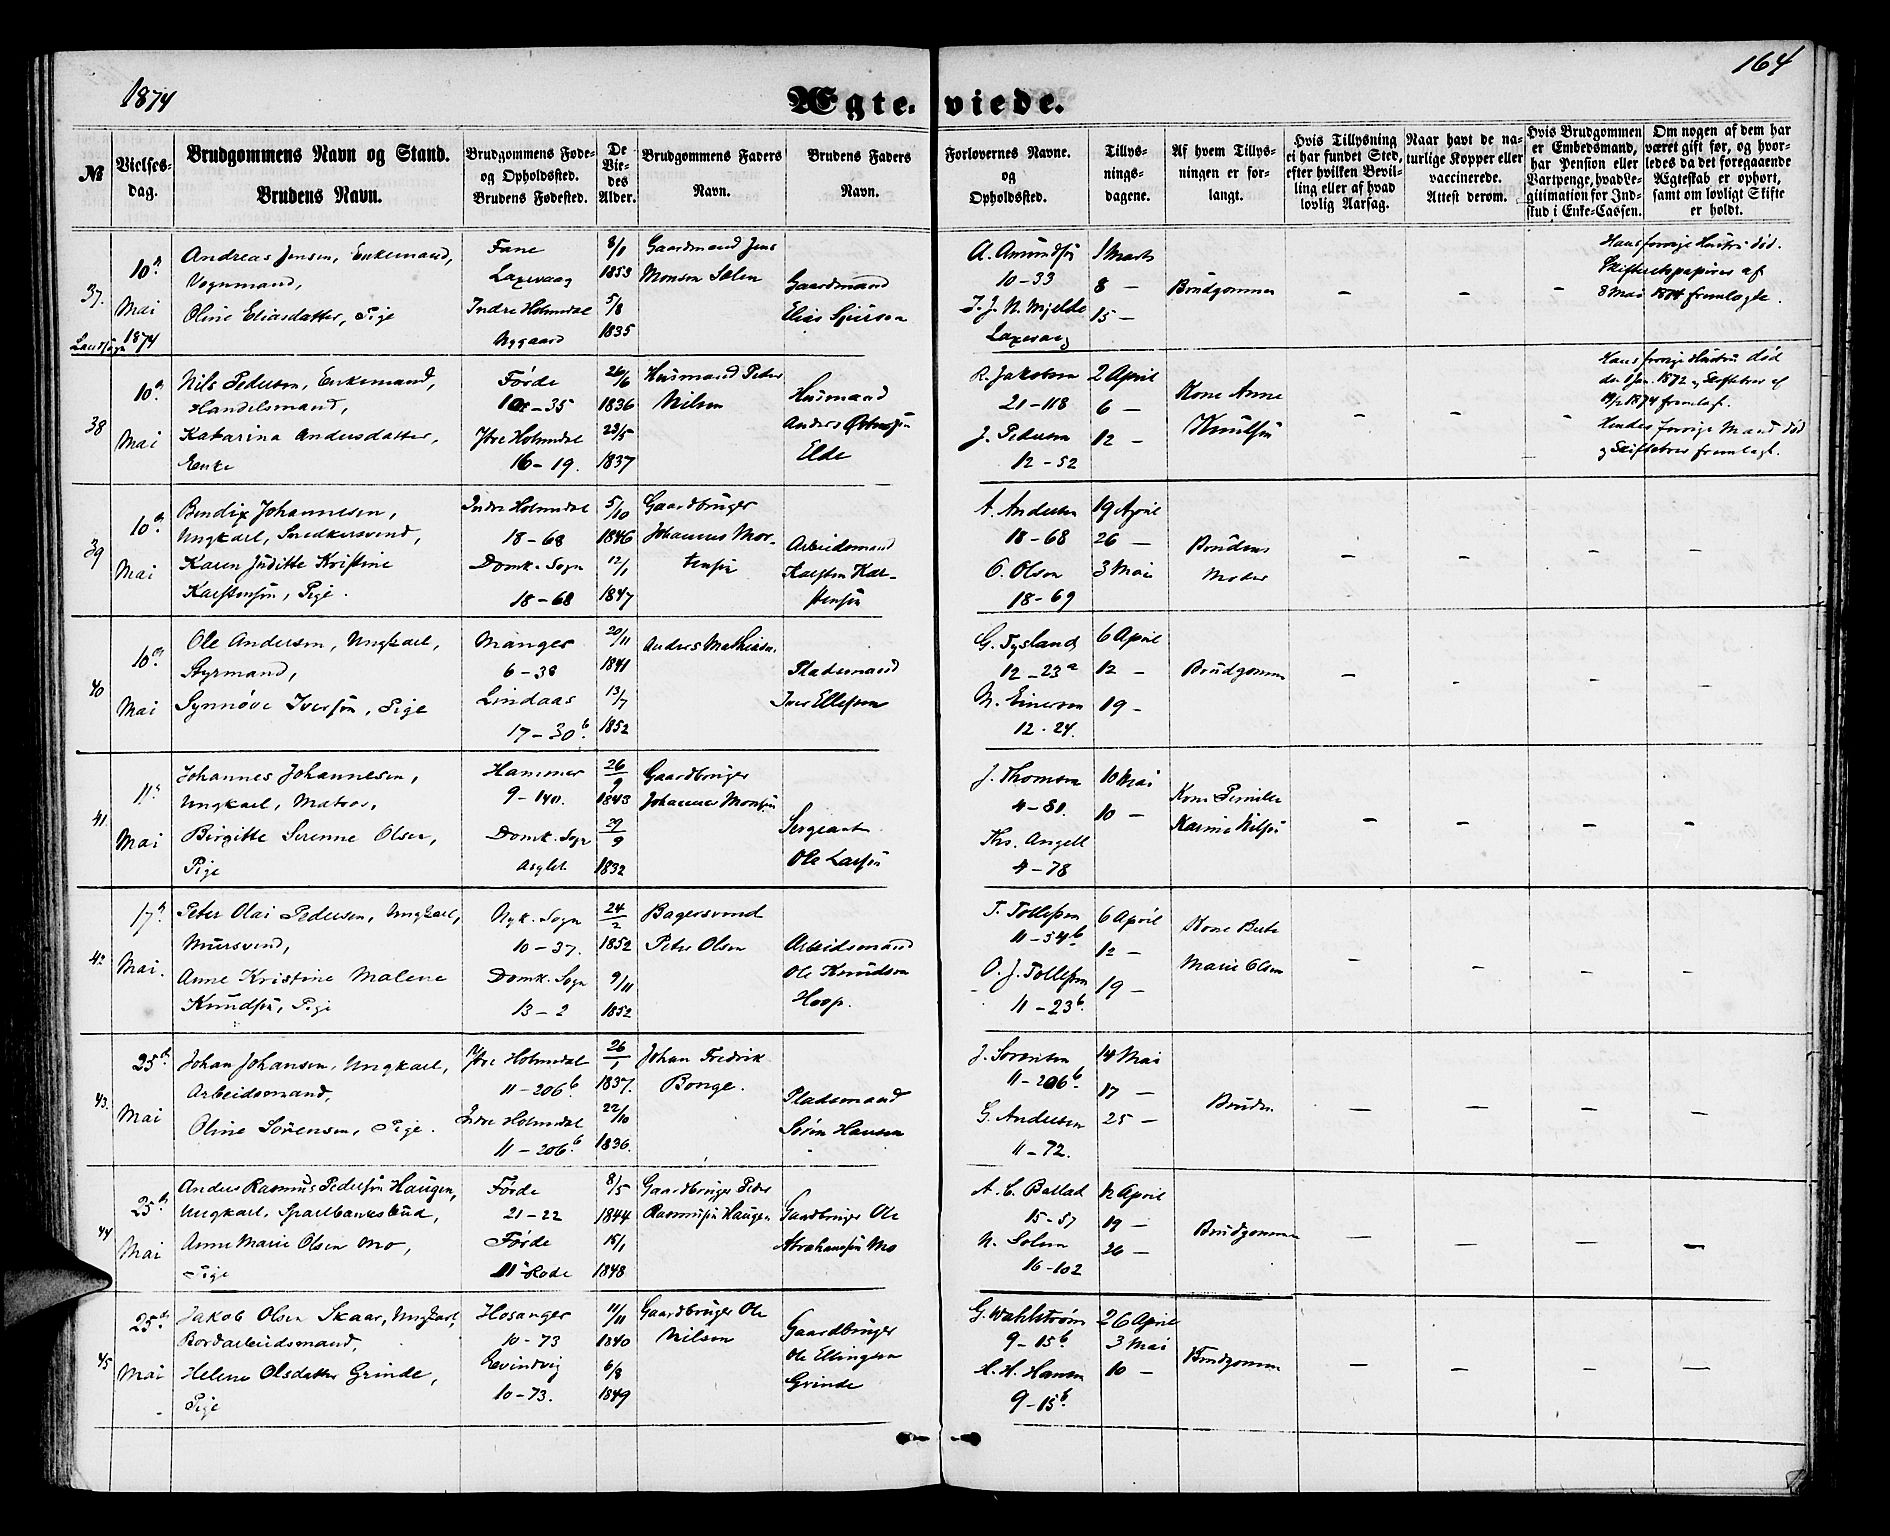 1874
164
Ægteviede.
№
Vielses-
dag.
Brudgommens Navn og Stand.
Brudens Navn.
Brudgommens Føde-
og Opholdssted.
Brudens Fødested.
De
Vie-
des
Alder.
Brudgommens Faders
Navn.
Brudens Faders
Navn.
Forlovernes Navne.
og
Opholdssted.
Tillys-
nings-
dagene.
Af hvem Tillys-
ningen er for-
langt.
Hvis Tillysning
ei har fundet Sted,
efter hvilken Bevil-
ling eller af hvad
lovlig Aarsag.
Naar havt de na-
turlige Kopper eller
vaccinerede.
Attest derom.
Hvis Brudgommen
er Embedsmand,
har Pension eller
Vartpenge, hvad Le-
gitimation for Ind-
skud i Enke-Cassen.
Om nogen af dem har
været gift før, og hvor-
ledes da det foregaaende
Ægteskab er ophørt,
samt om lovligt Skifte
er holdt.
37.
10de
Mai
1874
Andreas Jensen, Enkemand,
Vognmand,
Oline Eliasdatter, Pige
Fane
Laxevaag
Indre Holmedal
Nygaard
8/1
1853
5/8
1835
Gaardmand Jens
Monsen
Gaardmand
Elias
A. Amundsøn
10-33
Mjelde
Laxevaag
1 Marts
8 —
15 —
Brudgommen
—
—
—
Hans forrige Hustru død.
Skifteretspapirer af
8 Mai 1874 fremlagte.
38
10de
Mai
Nils Pedersen, Enkemand,
Handelsmand,
Katarina Andersdatter,
Enke
Førde
10-35
Ytre Holmedal
16-19.
26/6
1836
23/5
1837
Husmand Peder
Nilsen
Husmand
Anders
Elde
R. Jakobsen
21-118
J. Pedersen
12-52
2 April
6 —
12 —
Kone Anne
Knutsøn
—
—
—
Hans forrige Hustru død
1872 og Skiftebrev af
1874 fremlagt.
Hendes forrige Mand død
og Skiftebrev fremlagt.
39
10de
Mai
Bendix Johannesen,
Ungkarl, Snedkersvend,
Karen Juditte Kristine
Karstensøn, Pige.
Indre Holmedal
18-68
Domk. Sogn
18-68
5/10
1846
12/1
1847
Gaardbruger
Johannes Mor-
tensøn
Arbeidsmand
Karsten Kar-
stensøn
A. Andersen
18-68
O. Olsen
18-69
19 April
26 —
3 Mai
Brudens
Moder
—
—
—
—
40
10de
Mai
Ole Andersen, Ungkarl,
Styrmand,
Synnøve Iversøn, Pige
Manger
6-38
Lindaas
17-30b.
20/11
1841
13/7
1852
Anders Mathiasen.
Pladsmand
Iver Ellefsen
G. Tysland
12-23a
N. Einersen
12-24.
6 April
12 —
19 —
Brudgommen
—
—
—
—
41
11te
Mai
Johannes Johannesen,
Ungkarl, Matros,
Birgitte Serenne Olsen,
Pige
Hammer
9-140.
Domk. Sogn
26/9
1843
29/9
1832
Gaardbruger
Johannes Monsøn
Sergeant
Ole Larsøn
J. Thomsen
4-81.
Krs. Angell
4-78
10 Mai
10 —
Kone Pernille
Karine Nilsøn
—
—
—
—
42
17de
Mai.
Peter Olai Pedersen, Ungkarl,
Mursvend,
Anne Kristine Malene
Knudsøn, Pige
Nyk. Sogn
10-37.
Domk. Sogn
13-2
24/2
1852
9/11
1852
Bagersvend
Peter Olsen
Arbeidsmand
Ole Knudsen
Hoop.
T. Tollefsen
11-54b
O. J. Tollefsen
11-23b.
6 April
12 —
19 —
Kone Berte
Marie Olsen
—
—
—
—
43.
25de
Mai
Johan Johansen, Ungkarl,
Arbeidsmand,
Oline Sørensen, Pige.
Ytre Holmedal
11-206b.
Indre Holmedal
11-206b.
26/1
1837.
22/10
1836.
Johan Fredrik
Bonge.
Pladsmand
Søren Hansen
J. Sørensen
11-206b.
G. Andersen
11-72.
14 Mai
17 —
25 —
Bruden
—
—
—
—
44
25de
Mai
Anders Rasmus Pedersøn Haugen,
Ungkarl, Sparebanksbud,
Anne Marie Olsen Mo,
Pige
Førde
21-22
Førde
11te Rode
8/5
1844
15/1
1848
Gaardbruger Peder
Rasmussøn Haugen
Gaardbruger Ole
Abrahamsøn Mo
A. C. Ballad
15-57
N. Solem
16-102
12 April
19 —
26 —
Brudgommen
—
—
—
—
45
25de
Mai
Jakob Olsen Skaar, Ungkarl,
Bordarbeidsmand,
Helene Olsdatter Grinde,
Pige
Hosanger
10-73
Evindvig
10-73.
11/11
1840
6/8
1849
Gaardbruger Ole
Nilsen
Gaardbruger
Ole Ellingsen
Grinde
G. Wahlstrøm
9-15b
H. H. Hansen
9-15b.
26 April
3 Mai
10 —
Brudgommen
—
—
—
—